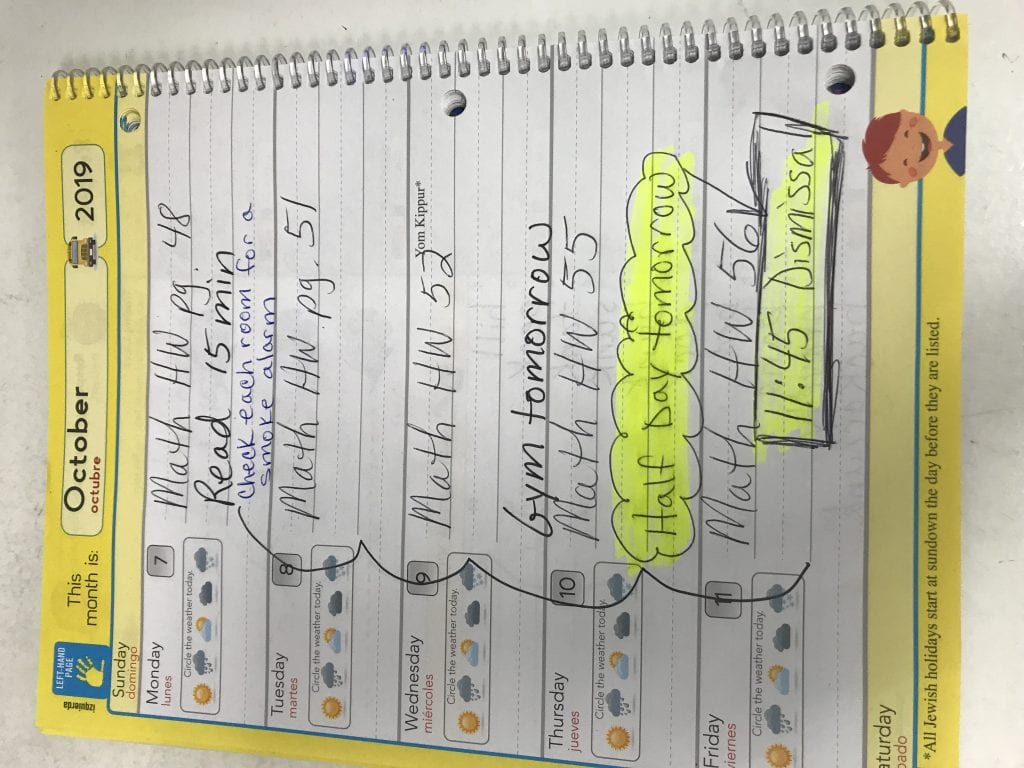 LEFT-HAND PAGE
izquierda
This month is:
October
octubre
2019
Sunday
domingo
Monday
lunes
7
Circle the weather today.
Math HW pg. 48
Read 15 min
Check each room for a
smoke alarm
Tuesday
martes
8
Circle the weather today.
Math HW pg. 51
Wednesday
miércoles
9
Circle the weather today.
Yom Kippur*
Math HW 52
Gym tomorrow
Thursday
jueves
10
Circle the weather today.
Math HW 55
Half Day tomorrow
Friday
viernes
11
Circle the weather today.
Math HW 56
11:45 Dismissal
aturday
bado
*All Jewish holidays start at sundown the day before they are listed.